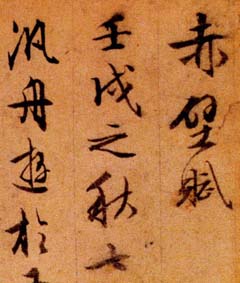 赤壁賦
壬戌之秋七
汎舟遊於